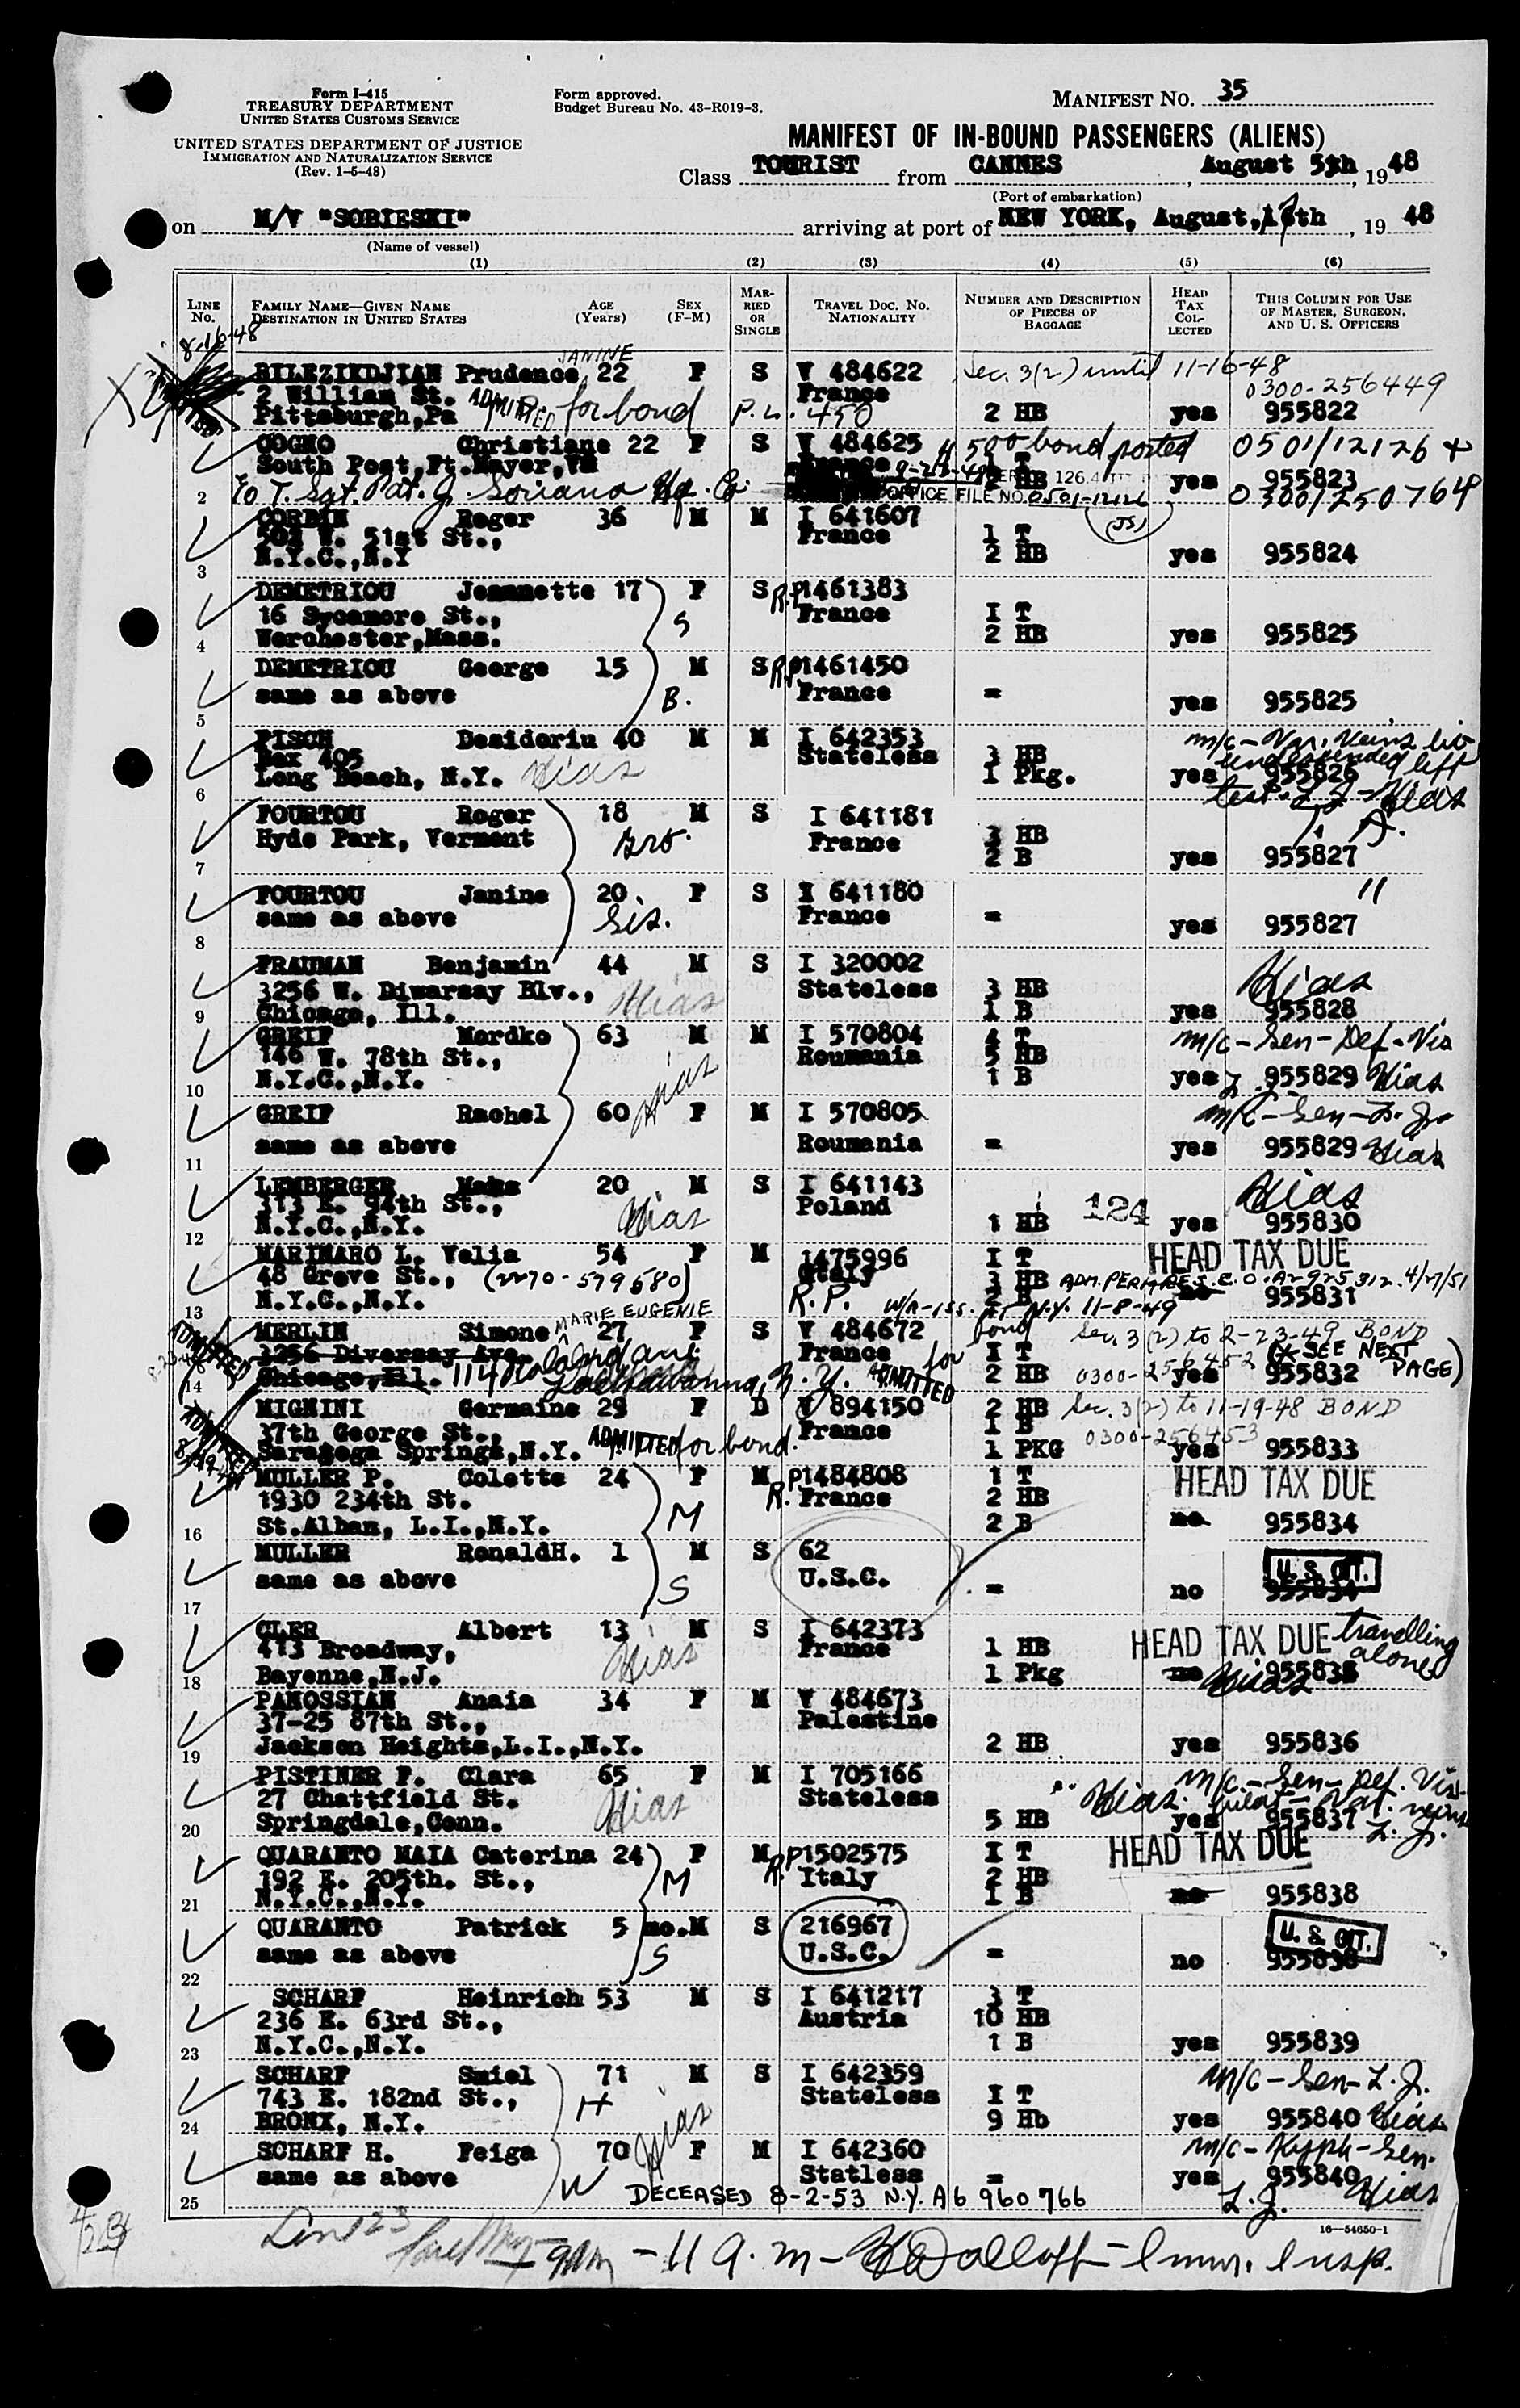 Form I-415
TREASURY DEPARTMENT
UNITED STATES CUSTOMS SERVICE
UNITED STATES DEPARTMENT OF JUSTICE
IMMIGRATION AND NATURALIZATION SERVICE
(Rev. 1-5-48)
Form approved.
Budget Bureau No. 43-R019-3.
MANIFEST NO. 35
MANIFEST OF IN-BOUND PASSENGERS (ALIENS)
Class TOURIST from CANNES, August 5th, 1948
(Port of embarkation)
on M/V "SOBIESKI" arriving at port of NEW YORK, August, 17th, 19 48
(Name of vessel)
(1) (2) (3) (4) (5) (6)
LINE No. FAMILY NAME—GIVEN NAME DESTINATION IN UNITED STATES AGE (Years) SEX (F-M) MARRIED OR SINGLE TRAVEL DOC. NO. NATIONALITY NUMBER AND DESCRIPTION OF PIECES OF BAGGAGE HEAD TAX COLLECTED THIS COLUMN FOR USE OF MASTER, SURGEON, AND U. S. OFFICERS
8-16-48
JANINE
BILEZIKDJIAN Prudence 22 F S V 484622 Sec. 3(2) until 11-16-48
2 William St. France 0300-256449
Pittsburgh,Pa ADMITTED for bond P.L. 450 2 HB yes 955822
COGNO Christiane 22 F S V 484625 500 bond posted 0501/12126 &
South Post,Ft.Mayer,VA France yes 955823
2 To T. Sgt. Pat. J. Soriano Hq. Co. OFFICE FILE NO. 0501-12126 0300/250764
(JS)
CORBIN Roger 36 M M I 641607
504 W. 51st St., France 1 T
N.Y.C.,N.Y 2 HB yes 955824
3
DEMETRIOU Jeannette 17 F S R.P1461383
16 Sycamore St., S France I T
Worchester,Mass. 2 HB yes 955825
4
DEMETRIOU George 15 M S R.P1461450
same as above B. France = yes 955825
5
FISCH Desideriu 40 M M I 642353
Box 405 Stateless 3 HB
Long Beach, N.Y. Hias 1 Pkg. yes 955826
6
FOURTOU Roger 18 M S I 641181
Hyde Park, Vermont Bro. France 3 HB
2 B yes 955827
7
FOURTOU Janine 20 F S I 641180 "
same as above Sis. France = yes 955827
8
FRAUMAN Benjamin 44 M S I 320002
3256 W. Diwarsay Blv., Hias Stateless 3 HB Hias
Chicago, Ill. 1 B yes 955828
9
GREIF Mordko 63 M M I 570804 4 T m/c-Sen-Def-Vis
146 W. 78th St., Roumania 5 HB
N.Y.C.,N.Y. Hias 1 B yes 955829 Hias
10
GREIF Rachel 60 F M I 570805 m/c-Sen-L.J.
same as above Roumania = yes 955829 Hias
11
LEMBERGER Maks 20 M S I 641143 Hias
313 E. 94th St., Hias Poland
N.Y.C.,N.Y. 1 HB 124 yes 955830
12
MARINARO L. Velia 54 F M 1475996 I T HEAD TAX DUE
48 Grove St., (2270-579580) Italy 3 HB ADM. PERM. RES. E.O. A2 925 312. 4/27/51
N.Y.C.,N.Y. R.P. W/A-ISS. AT N.Y. 11-8-49 955831
13
MARIE EUGENIE
MERLIN Simone 27 F S V 484672 bond Sec. 3(2) to 2-23-49 BOND
3256 Diversay Ave. France I T 0300-256452 (* SEE NEXT PAGE)
Chicago,Ill. Lackawanna, N.Y. ADMITTED for 2 HB yes 955832
14 ADMITTED
MIGNINI Germaine 29 F D V 894150 2 HB Sec. 3(2) to 11-19-48 BOND
37th George St., France 1 B 0300-256453
Saratega Springs,N.Y. ADMITTED for bond. 1 PKG yes 955833
ADMITTED
MULLER P. Colette 24 F M R.P1484808 1 T HEAD TAX DUE
1930 234th St. M France 2 HB
St.Alban, L.I.,N.Y. 2 B no 955834
16
MULLER RonaldH. 1 M S 62 U. S. CIT.
same as above S U.S.C. = no 955834
17
CLER Albert 13 M S I 642373 HEAD TAX DUE travelling alone
413 Broadway, Hias France 1 HB
Bayonne,N.J. 1 Pkg no Hias 955835
18
PANOSSIAN Anaia 34 F M V 484673
37-25 87th St., Palestine
Jackson Heights,L.I.,N.Y. 2 HB yes 955836
19
PISTINER F. Clara 65 F M I 705166 m/c-Sen-Def. Vis-
27 Chattfield St. Hias Stateless Hias.
Springdale,Conn. 5 HB yes 955837 L.J.
20
QUARANTO MAIA Caterina 24 F M R.P1502575 I T HEAD TAX DUE
192 E. 205th. St., M Italy 2 HB
N.Y.C.,N.Y. 1 B no 955838
21
QUARANTO Patrick 5 mo. M S 216967 U. S. CIT.
same as above S U.S.C. = no 955838
22
SCHARF Heinrich 53 M S I 641217 3 T
236 E. 63rd St., Austria 10 HB
N.Y.C.,N.Y. 1 B yes 955839
23
SCHARF Smiel 71 M S I 642359 m/c-Sen-L.J.
743 E. 182nd St., H Stateless I T
BRONX, N.Y. Hias 9 Hb yes 955840 Hias
24
SCHARF H. Feiga 70 F M I 642360 m/c-Kyph-Sen-
same as above W Statless = yes 955840 Hias
25 DECEASED 8-2-53 N.Y. A6 960 766 L.J.
16—54650-1
Line 23
9am - 11 a.m - Immr. Insp.